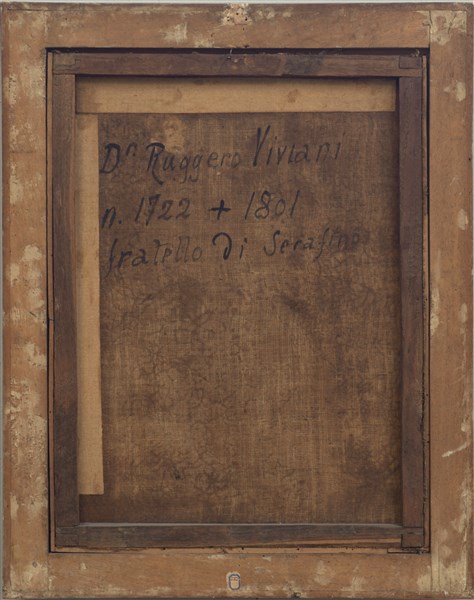 Dn Ruggero Viviani
n. 1722 + 1801
fratello di Serafino